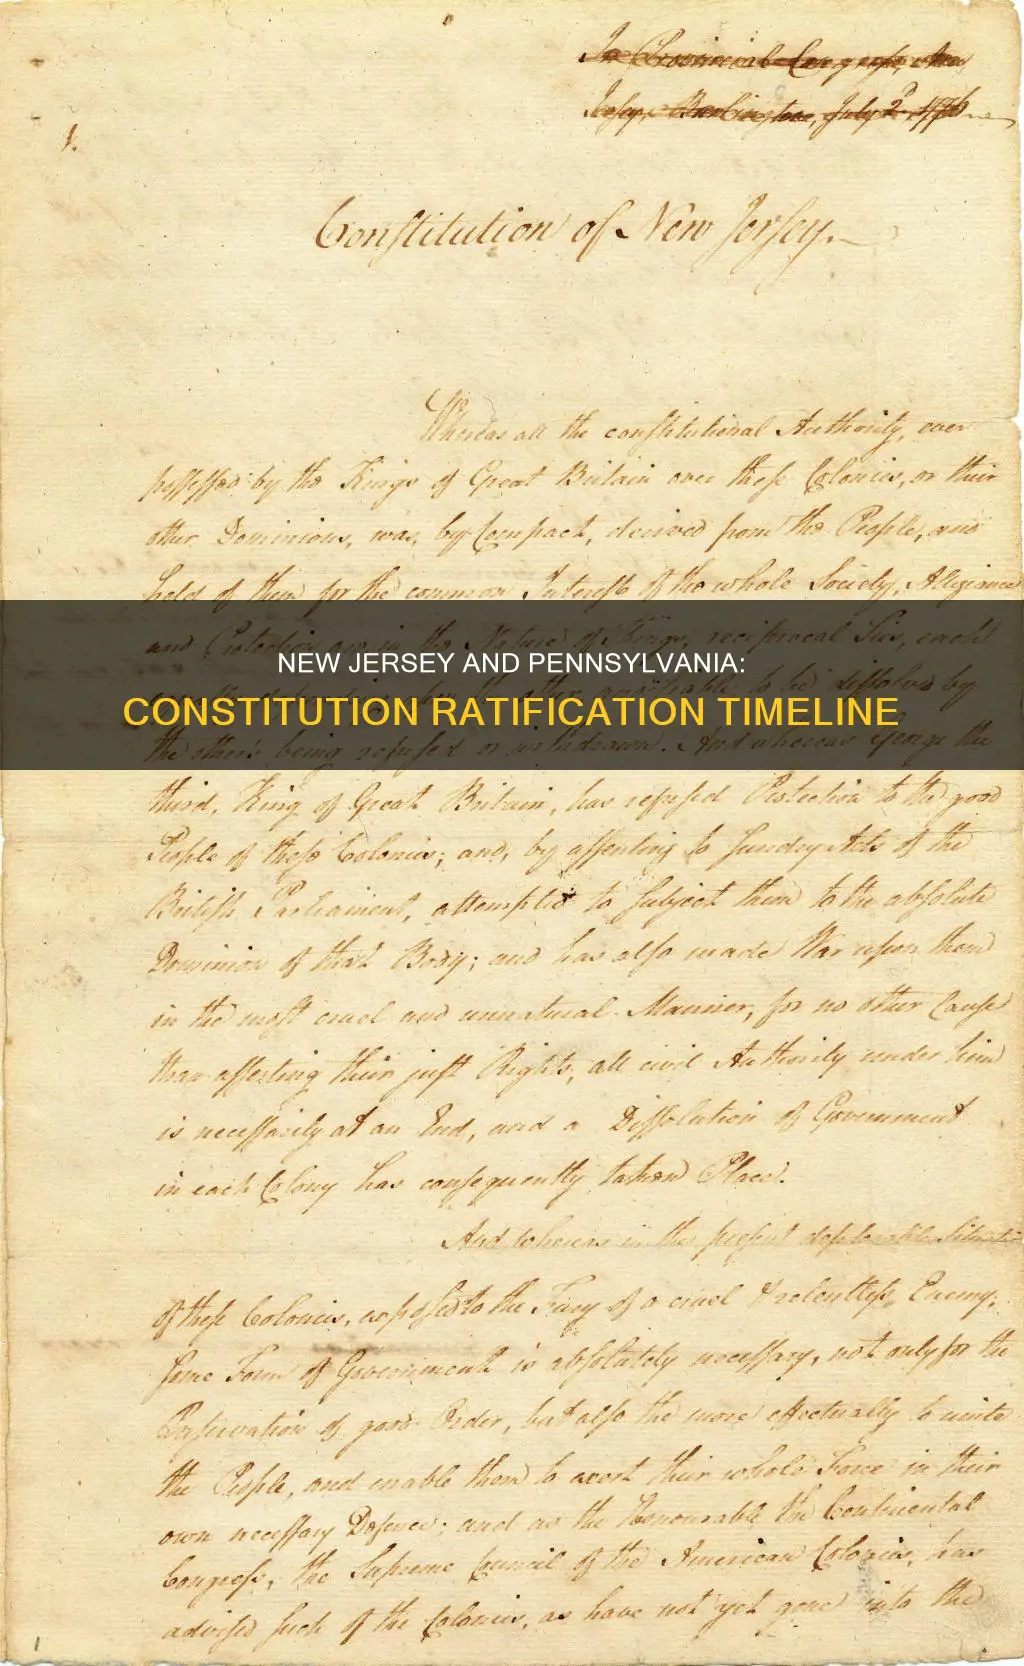 In Provincial Congress, New
Jersey, Burlington, July 2d 1776
1.
Constitution of New Jersey.
Whereas all the constitutional Authority, ever
possessed by the Kings of Great Britain over these Colonies, or their
other Dominions, was, by Compact, derived from the People, and
held of them for the common Interest of the whole Society, Allegiance
and Protection are in the Nature of Things, reciprocal Ties, each
NEW JERSEY AND PENNSYLVANIA:
CONSTITUTION RATIFICATION TIMELINE
to be dissolved by
the other's being refused or withdrawn. And whereas George the
third, King of Great Britain, has refused Protection to the good
People of these Colonies; and, by assenting to sundry Acts of the
British Parliament, attempted to subject them to the absolute
Dominion of that Body; and has also made War upon them
in the most cruel and unnatural Manner, for no other Cause
than asserting their just Rights, all civil Authority under him
is necessarily at an End, and a Dissolution of Government
in each Colony has consequently taken Place.
And whereas in the present deplorable Situation
of these Colonies, exposed to the Fury of a cruel & relentless Enemy,
some Form of Government is absolutely necessary, not only for the
Preservation of good Order, but also the more effectually to unite
the People, and enable them to exert their whole Force in their
own necessary Defence; and as the Honourable the Continental
Congress, the Supreme Council of the American Colonies, has
advised such of the Colonies, as have not yet gone into the